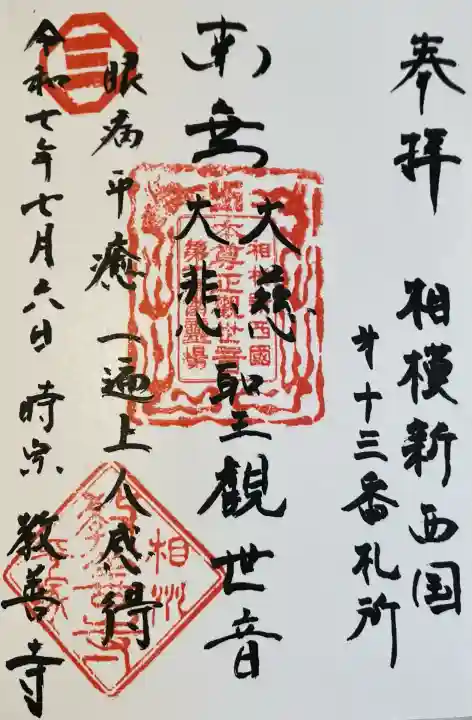 奉拝 相模新西国
第十三番札所
南無 大慈
大悲 聖観世音
眼病平癒 一遍上人感得
令和七年七月六日 時宗 教善寺
三
本尊正観世音
相州